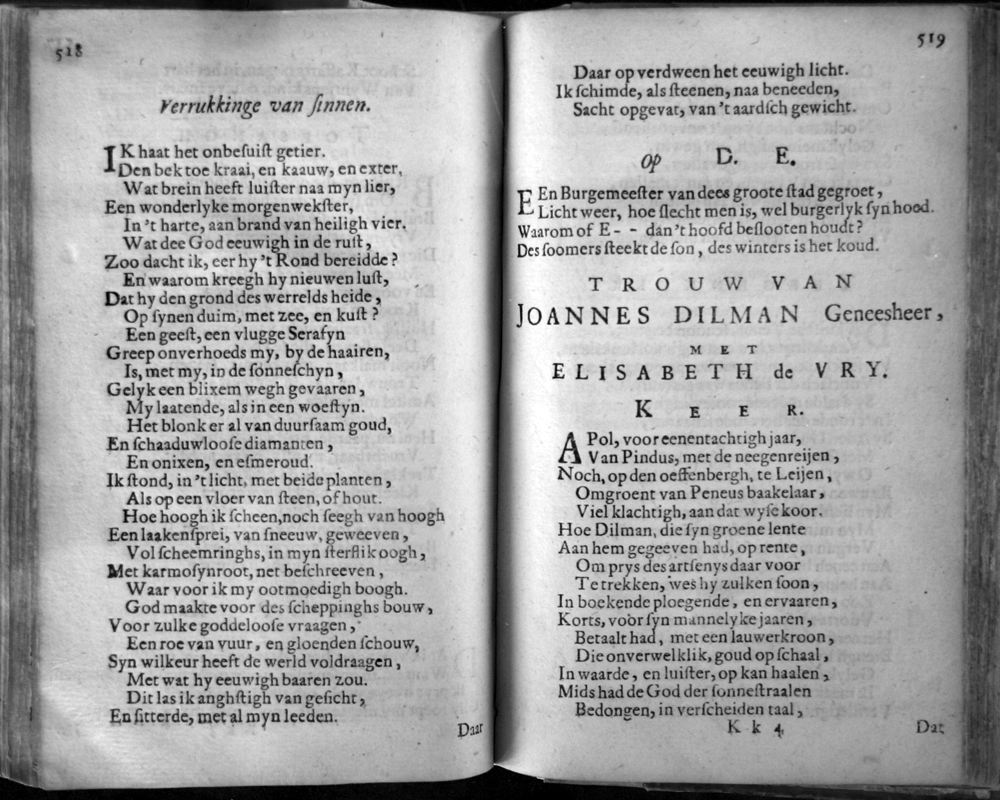 518
Verrukkinge van ſinnen.
IK haat het onbeſuiſt getier.
Den bek toe kraai, en kaauw, en exter,
Wat brein heeft luiſter naa myn lier,
Een wonderlyke morgenwekſter,
In 't harte, aan brand van heiligh vier.
Wat dee God eeuwigh in de ruſt,
Zoo dacht ik, eer hy 't Rond bereidde?
En waarom kreegh hy nieuwen luſt,
Dat hy den grond des werrelds heide,
Op ſynen duim, met zee, en kuſt?
Een geeſt, een vlugge Serafyn
Greep onverhoeds my, by de haairen,
Is, met my, in de ſonneſchyn,
Gelyk een blixem wegh gevaaren,
My laatende, als in een woeſtyn.
Het blonk er al van duurſaam goud,
En ſchaaduwlooſe diamanten,
En onixen, en eſmeroud.
Ik ſtond, in 't licht, met beide planten,
Als op een vloer van ſteen, of hout.
Hoe hoogh ik ſcheen, noch ſeegh van hoogh
Een laakenſprei, van ſneeuw, geweeven,
Vol ſcheemringhs, in myn ſterflik oogh,
Met karmoſynroot, net beſchreeven,
Waar voor ik my ootmoedigh boogh.
God maakte voor des ſcheppinghs bouw,
Voor zulke goddelooſe vraagen,
Een roe van vuur, en gloenden ſchouw,
Syn wilkeur heeft de werld voldraagen,
Met wat hy eeuwigh baaren zou.
Dit las ik anghſtigh van geſicht,
En ſitterde, met al myn leeden.
Daar
519
Daar op verdween het eeuwigh licht.
Ik ſchimde, als ſteenen, naa beneeden,
Sacht opgevat, van 't aardſch gewicht.
Op D. E.
EEn Burgemeeſter van dees groote ſtad gegroet,
Licht weer, hoe ſlecht men is, wel burgerlyk ſyn hoed.
Waarom of E- - dan 't hoofd beſlooten houdt?
Des ſoomers ſteekt de ſon, des winters is het koud.
TROUW VAN
JOANNES DILMAN Geneesheer,
MET
ELISABETH de VRY.
KEER.
APol, voor eenentachtigh jaar,
Van Pindus, met de neegenreijen,
Noch, op den oeffenbergh, te Leijen,
Omgroent van Peneus baakelaar,
Viel klachtigh, aan dat wyſe koor.
Hoe Dilman, die ſyn groene lente
Aan hem gegeeven had, op rente,
Om prys des artſenys daar voor
Te trekken, wes hy zulken ſoon,
In boekende ploegende, en ervaaren,
Korts, voor ſyn mannelyke jaaren,
Betaalt had, met een lauwerkroon,
Die onverwelklik, goud op ſchaal,
In waarde, en luiſter, op kan haalen,
Mids had de God der ſonneſtraalen
Bedongen, in verſcheiden taal,
K k 4
Dat